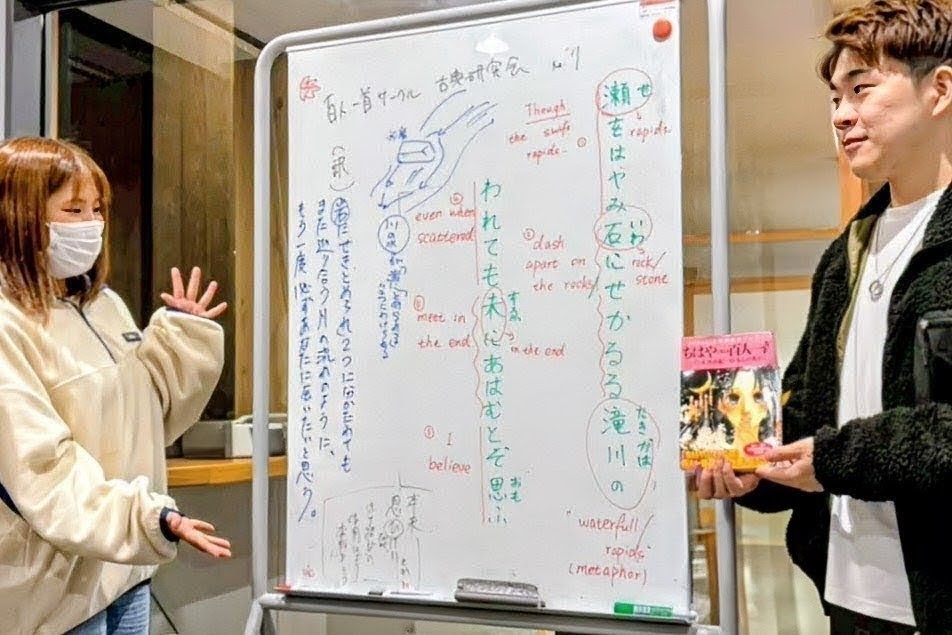 百人一首サークル 古典研究会 No.7
瀬をはやみ石にせかるる滝川の
せ
いわ
たきがは
われても末にあはむとぞ思ふ
すゑ
おも
Though
the swift
rapids
rapids
rock/
stone
dash
apart on
the rocks
even when
scattered
meet in
the end
in the end
I
believe
"waterfull/
rapids"
(metaphor)
(訳)
岩にせきとめられ2つに分かれても
また巡り合う川の流れのように、
もう一度必ずあなたに会いたいと思う。
川の水が
本来
ちはや
百人一首